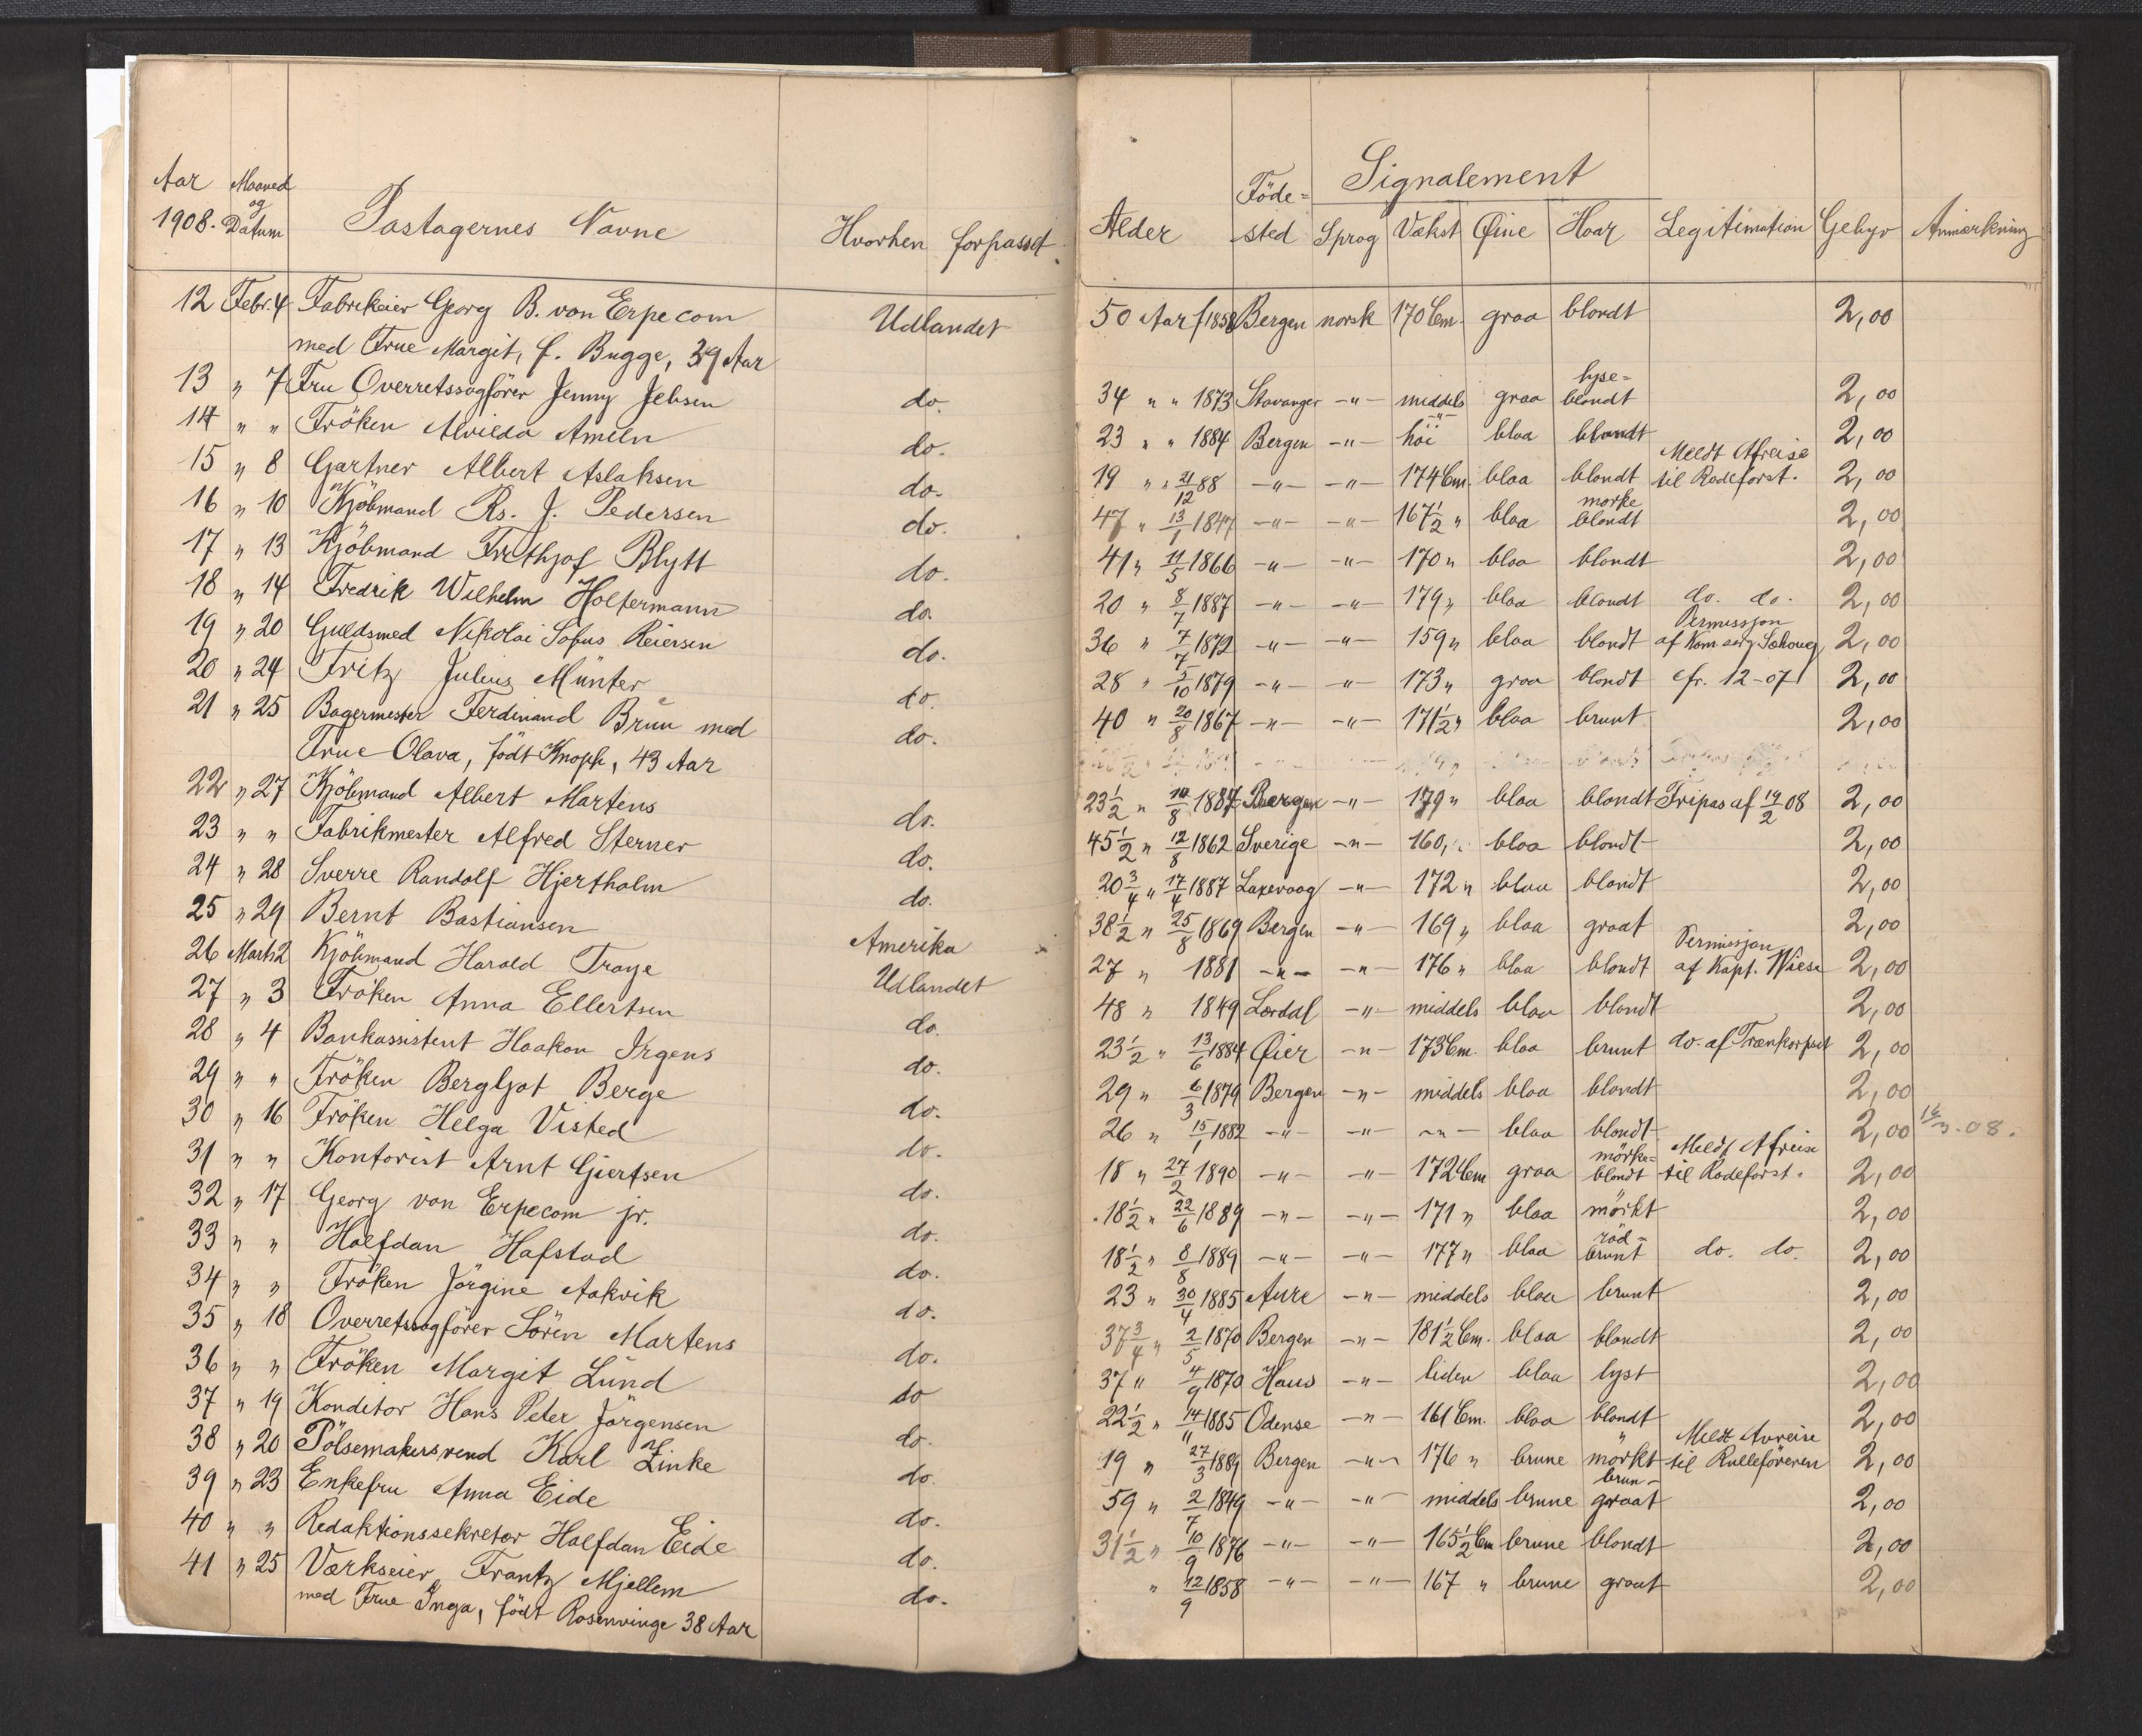 Aar Maaned og
1908. Datum Pastagernes Navne Hvorhen forpasset
12 Febr. 4 Fabrikeier Georg B. von Erpecom Udlandet
med Frue Margit, f. Bugge, 39 Aar
13 " 7 Fru Overretssagförer Jenny Jebsen do.
14 " " Fröken Alvilda Ameln do.
15 " 8 Gartner Albert Aslaksen do.
16 " 10 Kjöbmand Rs. J. Pedersen do.
17 " 13 Kjöbmand Frithjof Blytt do.
18 " 14 Fredrik Wilhelm Holtermann do.
19 " 20 Guldsmed Nikolai Sofus Reiersen do.
20 " 24 Fritz Julius Münter do.
21 " 25 Bagermester Ferdinand Bruun med do.
Frue Olava, födt Knoph, 43 Aar
22 " 27 Kjöbmand Albert Martens do.
23 " " Fabrikmester Alfred Sterner do.
24 " 28 Sverre Randolf Hjertholm do.
25 " 29 Bernt Bastiansen Amerika
26 Marts 2 Kjöbmand Harald Troye Udlandet
27 " 3 Fröken Anna Ellertsen do.
28 " 4 Bankassistent Haakon Irgens do.
29 " " Fröken Bergljot Berge do.
30 " 16 Fröken Helga Visted do.
31 " " Kontorist Arnt Giertsen do.
32 " 17 Georg von Erpecom jr. do.
33 " " Halfdan Hafstad do.
34 " " Fröken Jörgine Aakvik do.
35 " 18 Overretssagförer Sören Martens do.
36 " " Fröken Margit Lund do
37 " 19 Konditor Hans Peter Jörgensen do.
38 " 20 Pölsemakersvend Karl Linke do.
39 " 23 Enkefru Anna Eide do.
40 " " Redaktionssekretær Halfdan Eide do.
41 " 25 Værkseier Frantz Mjellem do.
med Frue Inga, födt Rosenvinge 38 Aar
Signalement
Alder Föde=sted Sprog Vækst Øine Haar Legitimation Gebyr Anmærkning
50 Aar f 1858 Bergen norsk 170 Cm. graa blondt 2,00
34 " " 1873 Stavanger -"- middels graa lyse=blondt 2,00
23 " " 1884 Bergen -"- höi bloa blondt 2,00
19 " " 21/12 88 -"- -"- 174 Cm. bloa blondt Meldt Afreise til Rodeforst. 2,00
47 " 13/1 1847 -"- -"- 167 1/2 " bloa mørke blondt 2,00
41 " 11/5 1866 -"- -"- 170 " bloa blondt 2,00
20 " 8/7 1887 -"- -"- 179 " bloa blondt do. do. 2,00
36 " 7/7 1872 -"- -"- 159 " bloa blondt Permissjon af 2,00
28 " 5/10 1879 -"- -"- 173 " graa blondt cfr. 12-07 2,00
40 " 20/8 1867 -"- -"- 171 1/2 " bloa brunt 2,00
23 1/2 " 14/8 1884 Bergen -"- 179 " bloa blondt Fripas af 19/2 08 2,00
45 1/2 " 12/8 1862 Sverige -"- 160, " bloa blondt 2,00
20 3/4 " 17/4 1887 Laxevaag -"- 172 " bloa blondt 2,00
38 1/2 " 25/8 1869 Bergen -"- 169 " bloa graat 2,00
27 " 1881 -"- -"- 176 " bloa blondt Permissjon af Kapt. Wiese 2,00
48 " 1849 Lærdal -"- middels bloa blondt 2,00
23 1/2 " 13/6 1884 Øier -"- 173 Cm. bloa brunt do. af Trænkorpset 2,00
29 " 6/3 1879 Bergen -"- middels bloa blondt 2,00
26 " 15/1 1882 -"- -"- -"- bloa blondt 2,00 16/3-08.
18 " 27/2 1890 -"- -"- 172 Cm graa mörke=blondt Meldt Afreise til Rodeforst. 2,00
18 1/2 " 22/6 1889 -"- -"- 171 " bloa mörkt 2,00
18 1/2 " 8/8 1889 -"- -"- 177 " bloa röd=brunt do. do. 2,00
23 " 30/4 1885 Aure -"- middels bloa brunt 2,00
37 3/4 " 2/5 1870 Bergen -"- 181 1/2 Cm. bloa blondt 2,00
37 " 4/9 1870 Haus -"- liden bloa lyst 2,00
22 1/2 " 14/11 1885 Odense -"- 161 Cm. bloa blondt 2,00
19 " 27/3 1889 Bergen -"- 176 " brune mörkt Meldt Avreise til Rulleföreren 2,00
59 " 2/7 1849 -"- -"- middels brune brun-graat 2,00
31 1/2 " 10/9 1876 -"- -"- 165 1/2 Cm brune blondt 2,00
" 12/9 1858 -"- -"- 167 " brune graat 2,00